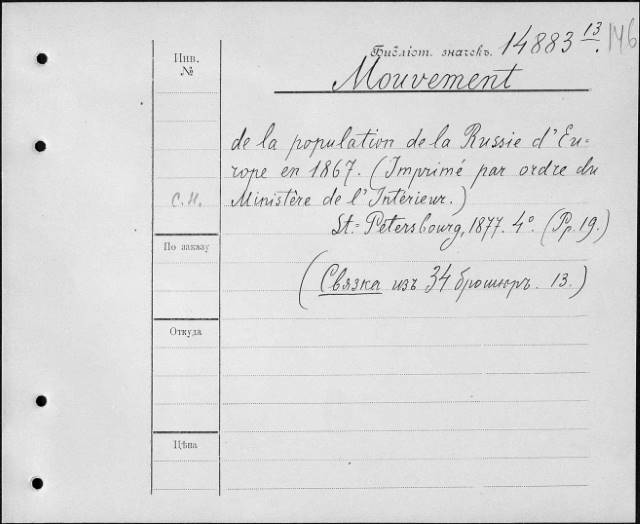 Библіот. значекъ. 14883 13. 146
Инв.
№
Mouvement
de la population de la Russie d'Eu=
rope en 1867. (Imprimé par ordre du
С.Н. Ministère de l'Intérieur.)
St.=Pétersbourg, 1877. 4°. (Pp. 19.)
По заказу
(Связка изъ 34 брошюръ. 13.)
Откуда
Цѣна